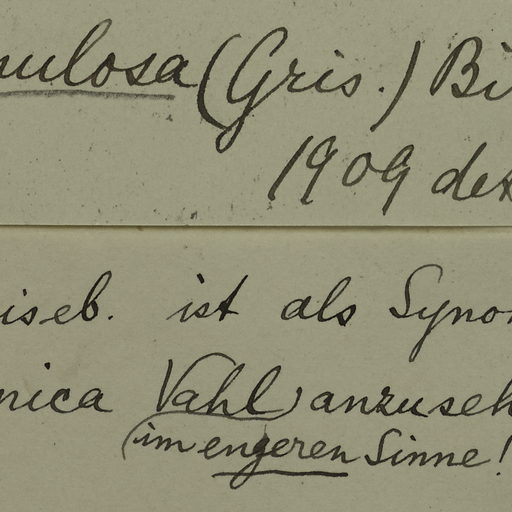 nulosa (Gris.) Bi
1909 det
iseb. ist als Synon
nica Vahl anzuseh
(im engeren Sinne!